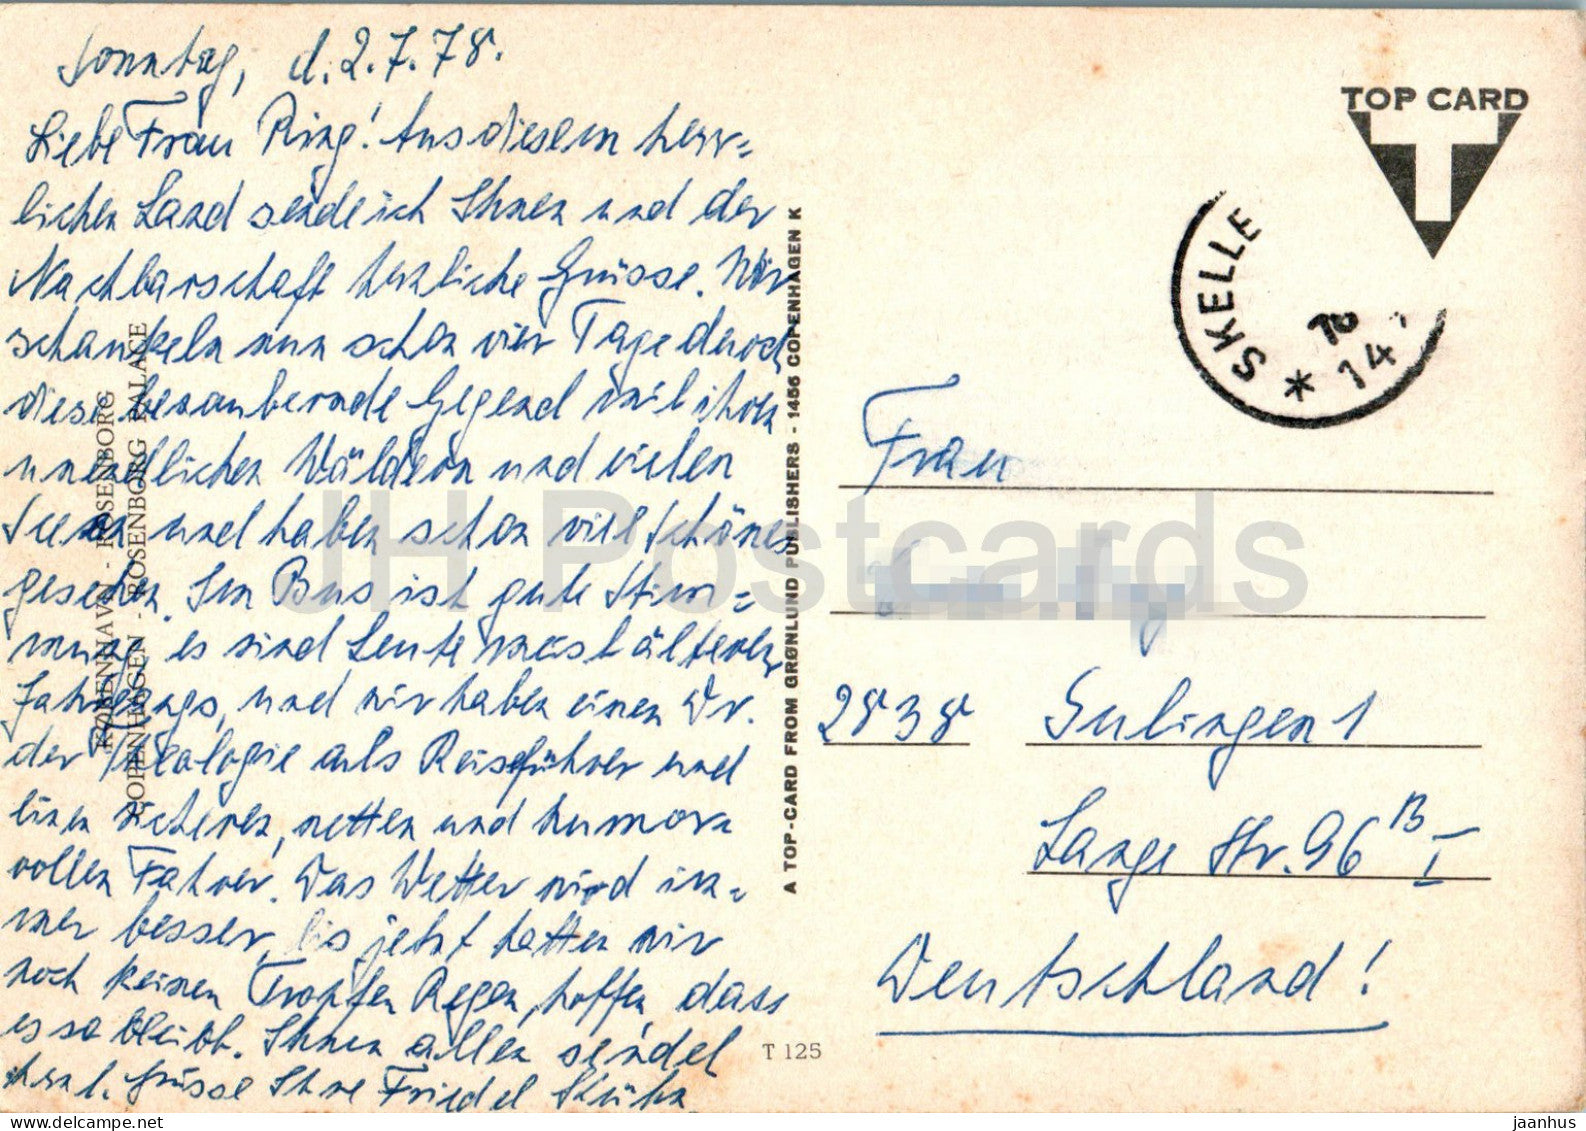 Sonntag, d. 2.7.78.
Liebe Frau Ring! Aus diesem herr=
lichen Land sende ich Ihnen und der
Nachbarschaft herzliche Grüsse. Wir
schaukeln nun schon vier Tage durch
diese bezaubernde Gegend mit ihren
unendlichen Wäldern und vielen
Seen und haben schon viel Schönes
gesehen. Im Bus ist gute Stim=
mung, es sind Leute meist älteren
Jahrgangs, und wir haben einen Dr.
der Theologie als Reiseführer und
einen sicheren, netten und humor=
vollen Fahrer. Das Wetter wird im=
mer besser, bis jetzt hatten wir
noch keinen Tropfen Regen, hoffen dass
es so bleibt. Ihnen allen sendet
herzl. Grüsse Ihre Friedel
KØBENHAVN - ROSENBORG
COPENHAGEN - ROSENBORG PALACE
A TOP-CARD FROM GRØNLUND PUBLISHERS - 1466 COPENHAGEN K
T 125
TOP CARD
T
SKELLE
78
* 14
Frau
2838 Sulingen 1
Lange Str. 96 B I
Deutschland!
IH Postcards
jaanhus